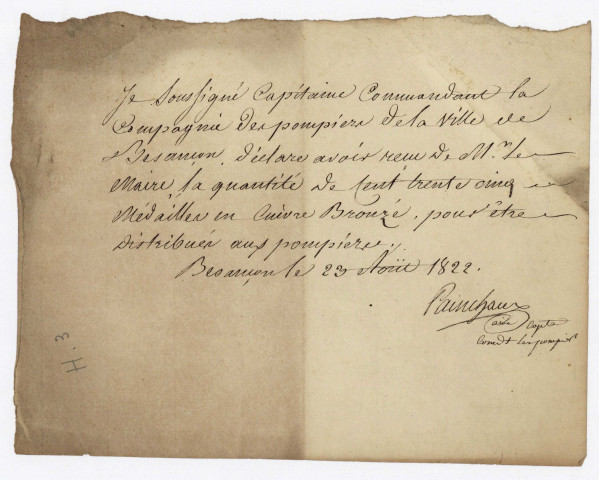 Je Soussigné Capitaine Commandant la
Compagnie des pompiers de la Ville de
Besançon, déclare avoir reçu de Mr. Le
Maire, la quantité de Cent trente cinq
Médailles en Cuivre Bronzé, pour être
distribués aux pompiers.
Besançon le 23 Août 1822.
Painchaux
Capte
Comdt les pompiers
H.3